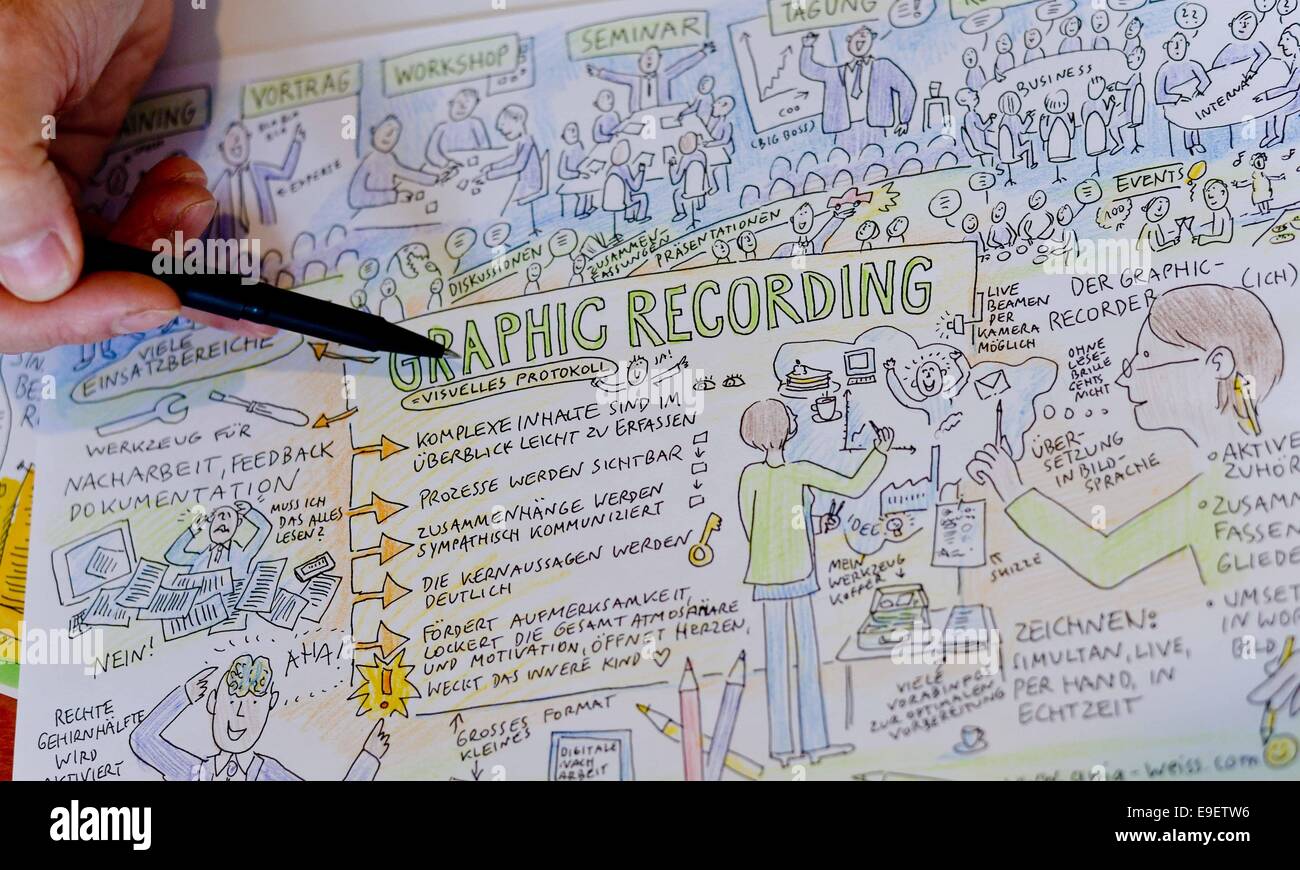 TRAINING
VORTRAG
WORKSHOP
SEMINAR
TAGUNG
BLA BLA
BLA
EXPERSE
COO
(BIG BOSS)
BUSINESS
INTERNAT
EVENTS
DISKUSSIONEN
ZUSAMMEN-
FASSUNGEN
PRÄSENTATIONEN
VIELE
EINSATZBEREICHE
GRAPHIC RECORDING
=VISUELLES PROTOKOLL
JA!
LIVE
BEAMEN
PER
KAMERA
MÖGLICH
DER GRAPHIC-
RECORDER
(ICH)
OHNE
LESE-
BRILLE
GEHTS
NICHT
WERKZEUG FÜR
NACHARBEIT, FEEDBACK
DOKUMENTATION
MUSS ICH
DAS ALLES
LESEN?
NEIN!
AHA!
RECHTE
GEHIRNHÄLFTE
WIRD
AKTIVIERT
KOMPLEXE INHALTE SIND IM
ÜBERBLICK LEICHT ZU ERFASSEN
PROZESSE WERDEN SICHTBAR
ZUSAMMENHÄNGE WERDEN
SYMPATHISCH KOMMUNIZIERT
DIE KERNAUSSAGEN WERDEN
DEUTLICH
FÖRDERT AUFMERKSAMKEIT,
LOCKERT DIE GESAMTATMOSPHÄRE
UND MOTIVATION, ÖFFNET HERZEN,
WECKT DAS INNERE KIND
!
GROSSES FORMAT
KLEINES
DIGITALE
NACH
ARBEIT
IDEE
MEIN
WERKZEUG
KOFFER
SKIZZE
VIELE
VORABINFOS
ZUR OPTIMALEN
VORBEREITUNG
ÜBER-
SETZUNG
IN BILD-
SPRACHE
ZEICHNEN:
SIMULTAN, LIVE,
PER HAND, IN
ECHTZEIT
AKTIVE
ZUHÖ
ZUSAMM
FASSEN
GLIEDE
UMSET
IN WOR
BILD
-weiss.com
alamy
E9ETW6
www.alamy.com